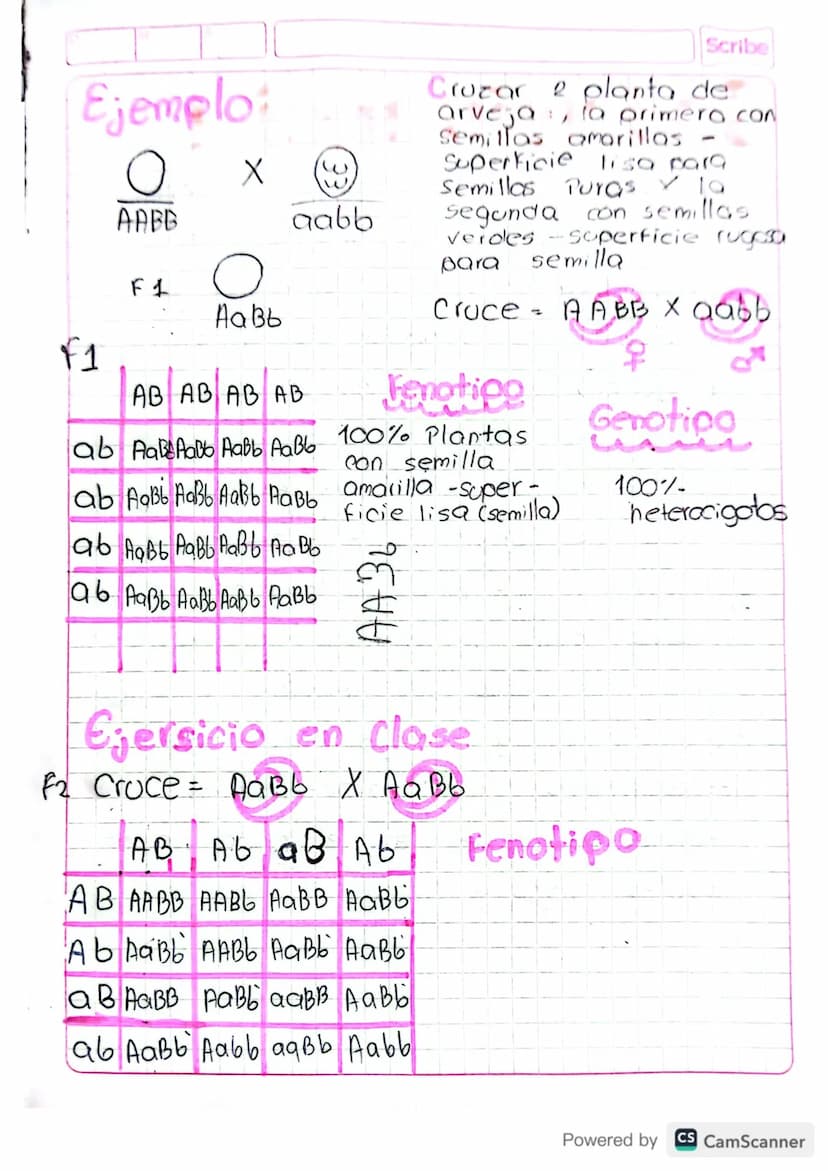 Scribe
Ejemplo:
X
AABB
aabb
F1
AaBb
Cruzar 2 planta de
arveja:, la primera con
semillas amarillas -
superficie lisa para
semillas Puras y la
segunda con semillas
verdes - superficie rugosa
para semilla
Cruce = AABB X aabb
♀ ♂
F1
AB AB AB AB
ab AaBb AaBb AaBb AaBb
ab AaBb AaBb AaBb AaBb
ab AaBb AaBb AaBb AaBb
ab AaBb AaBb AaBb AaBb
Fenotipo
100% Plantas
con semilla
amarilla -super-
ficie lisa (semilla)
Genotipo
100%
heterocigotos
Ejersicio en Clase
F2 Cruce = AaBb X AaBb
AB Ab aB Ab
AB AABB AABb AaBB AaBb
Ab AaBb AABb AaBb AaBb
aB AaBB AaBb aaBB AaBb
ab AaBb Aabb aaBb Aabb
Fenotipo
Powered by CS CamScanner